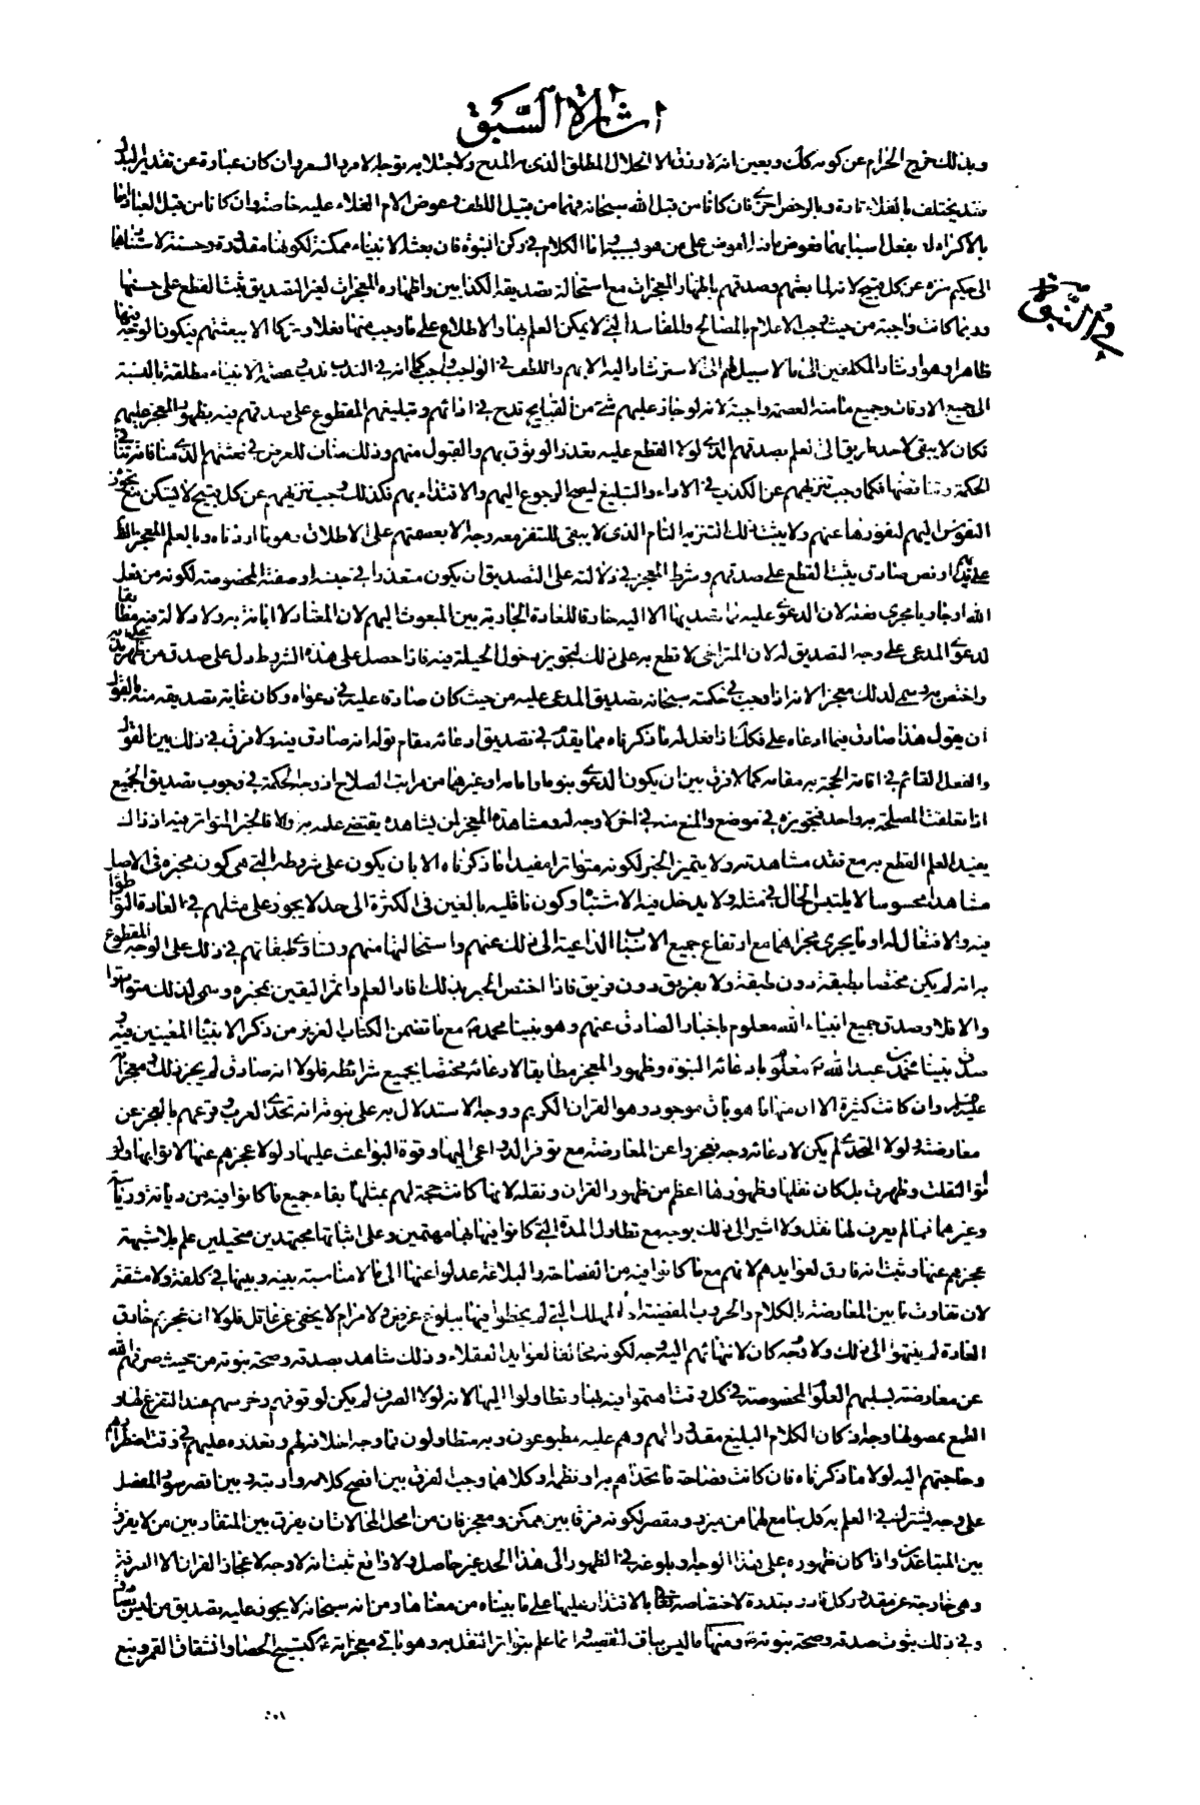 اشارة السَّبَق
وبذلك خرج الحرام عن كونه كك وبعين انه لا رزق الا الحلال المطلق الذى هو المدح ولاجتلابه يوجه الامر والسعر وان كان عبارة عن تقدير البدل
فقد يختلف بالغلاء تارة وبالرخص اخرى فان كانا من قبل الله سبحانه فهما من قبيل اللطف وعوض الام الغلاء عليه خاصة وان كانا من قبل العباد اما
بالاكراه او بفعل اسبابهما فعوض ما زاد العوض على من هو بسببه واما الكلام فى ركن النبوة فان بعثة الانبياء ممكنة لكونها مقدورة وحسنة لاستنادها
فى النبوّة
الى حكيم منزه عن كل قبيح لانه لما بعثهم وصدقهم باظهار المعجزات مع استحالة تصديقه الكذابين واظهاره المعجزات لغير التصديق ثبت القطع على حسنها
وربما كانت واجبة من حيث وجب الاعلام بالمصالح والمفاسد التى لا يمكن العلم بها والاطلاع على ما وجب منها فعلا وتركا الا ببعثتهم فيكون الوجه فيها
ظاهرا وهو ارشاد المكلفين الى ما لا سبيل لهم الى الاسترشاد اليه الا بهم واللطف فى الواجب واجب كما انه فى الندب ندب عصمة الانبياء مطلقة بالنسبة
الى جميع الاوقات وجميع ما منه العصمة واجبة لانه لو جاز عليهم شئ من القبايح قدح فى ادائهم وتبليغهم المقطوع على صدقهم فيه بظهور المعجز عليهم
فكان لا يبقى لاحد طريق الى تعلم بصدقهم الذى لولا القطع عليه تعذر الوثوق بهم والقبول منهم وذلك مناف للغرض فى بعثتهم الذى منافاته تنافى
الحكمة وتناقضها فكما وجب تنزيههم عن الكذب فى الاداء والتبليغ ليصح الرجوع اليهم والاقتداء بهم فكذلك وجب تنزيههم عن كل قبيح لا تسكن مع تجوز
النفوس اليهم لنفورها عنهم ولا يثبت ذلك التنزيه التام الذى لا يبقى للتنفر معه وجه الا بعصمتهم على الاطلاق وهو ما اردناه وبالعلم المعجز
او نص صادق يثبت القطع على صدقهم وشرط المعجز فى دلالته على التصديق ان يكون متعذرا فى جنسه او صفته المخصوصة لكونه من فعل
الله او جاريا مجرى فعله لان الدعوى عليه تصديقها الا اليه خارقا للعادة الجارية بين المبعوث اليهم لان المعتاد لا ابانة به ولا دلالة فيه مطابقا
لدعوى المدعى على وجه التصديق له لان المتراخى لا قطع به على ذلك لتجويز دخول الحيلة فيه فاذا حصل على هذه الشروط دل على صدق من ظهر
واختص به وسمى لذلك معجزا لانه اذا وجب فى حكمته سبحانه تصديق المدعى عليه من حيث كان صادقا عليه فى دعواه وكان غاية تصديقه منه بالقول
ان يقول هذا صادق فيما ادعاه على فكك اذا فعل له ما ذكرناه مما يقدم فى تصديق ادعائه مقام قوله انه صادق فيه ولا فرق فى ذلك بين القول
والفعل القائم فى اقامة الحجة به مقامه كما لا فرق بين ان يكون المدعى نبيا او اماما او غيرهما من مراتب الصلاح اذ وجه الحكمة فى وجوب تصديق الجميع
اذا تعلقت المصلحة به واحد فتجويزه فى موضع والمنع منه فى اخر لا وجه له ومشاهدة المعجز لمن يشاهده يقتضى علمه به والا فالخبر المتواتر فيه اذ ذاك
يفيد العلم القطع به مع فقد مشاهدته ولا يتميز الخبر لكونه متواترا مفيدا ما ذكرناه الا بان يكون على شروطه التى هى كون مخبره فى الاصل
مشاهدا محسوسا لا يلتبس الحال فى مثله ولا يدخل فيه الاشتباه وكون ناقليه بالغين فى الكثرة الى حد لا يجوز على مثلهم فى العادة التواطؤا
فيه والافتعال له او ما يجرى مجراهما مع ارتفاع جميع الاسباب الداعية الى ذلك عنهم واستحالتها منهم وتساوى طبقاتهم فى ذلك على الوجه المقطوع
به انه لم يكن مختصا بطبقة دون طبقة ولا بفريق دون فريق فاذا اختص الخبر بذلك افاد العلم واثمر اليقين بمخبره وسمى لذلك متواترا
والا فلا وصدق جميع انبياء الله معلوم باخبار الصادق عنهم وهو نبينا محمد ص مع ما تضمن الكتاب العزيز من ذكر الانبياء المعينين فيه
صدق نبينا محمد بن عبد الله ص معلوم بادعائه النبوة وظهور المعجز مطابقا لادعائه مختصا بجميع شرائطه فلولا انه صادق لم يجز ذلك معجزاته
عليه وان كانت كثيرة الا ان منها ما هو باق موجود وهو القران الكريم ووجه الاستدلال به على نبوته انه تحدى العرب وقرعهم بالعجز عن
معارضته ولولا التحدى لم يكن لادعائه وجه فعجزوا عن المعارضة مع توفر الدواعى اليها وقوة البواعث عليها ولولا عجزهم عنها لاتوا بها ولو
اتوا لنقلت وظهرت بل كان نقلها وظهورها اعظم من ظهور القران ونقله لانها كانت حجة لهم بمثلها بقاء جميع ما كانوا فيه من ديانة ورياسة
وغيرهما فما لم يعرف لها نقل ولا اشير الى ذلك بوجه مع تطاول المدة التى كانوا فيها بها مهتمين وعلى اثباتها مجتهدين متحيلين علم بلا شبهة
عجزهم عنها وثبت انه خارق لعوايدهم لانهم مع ما كانوا فيه من الفصاحة والبلاغة عدلوا عنها الى ما لا مناسبة بينه وبينها فى كلفة ولا مشقة
لان تفاوت ما بين المعارضة بالكلام والحروب المفضية الى المهالك التى لم يحظوا فيها ببلوغ غرض ولا مرام لا يخفى عن عاقل فلولا ان عجزهم خارق
العادة لم ينتهوا الى ذلك ولا وجه كان لانتهائهم اليه وجه لكونه مخالفا لعوايد العقلاء وذلك شاهد بصدقه وصحة نبوته من حيث صرفهم الله
عن معارضته بسلبهم العلوم المخصوصة فى كل وقت اهتموا فيه بها وتطاولوا اليها لانه لولا الصرف لم يكن لوقوفهم وخرسهم عند التقريع لها و
الطمع بحصولها وجه اذ كان الكلام البليغ مقدورا لهم وهم عليه مطبوعون وبه متطاولون فما وجه اخلاقهم وتعذره عليهم فى وقت اضطرارهم
وحاجتهم اليه لولا ما ذكرناه فان كانت فصاحة ما تحداهم به او نظمه او كلاهما وجب الفرق بين افصح كلامهم وارتبه وبين اقصر سور المفصل
على وجه يشترك فى العلم به كل سامع لهما من مبرز ومقصر لكونه فرقا بين ممكن ومعجز فان من امحل المحالات ان يفرق بين المتقاربين من لا يفرق
بين المتباعدين واذا كان ظهوره على هذا الوجه وبلوغه فى الظهور الى هذا الحد غير حاصل ولا واقع ثبت انه لا وجه لاعجاز القران الا الصرفة
وهى خارجة عن مقدور كل قادر بقدرة لاختصاصه تعالى بالاقتدار عليها على ما بيناه من معناها ومن انه سبحانه لا يجوز عليه تصديق من ليس بصادق
وفى ذلك ثبوت صدقه وصحة نبوته ص ومنها ما ليس بباق لتقضيه وانما علم بتواتر النقل به وهو باقى معجزاته ص كتسبيح الحصا وانشقاق القمر ونبع